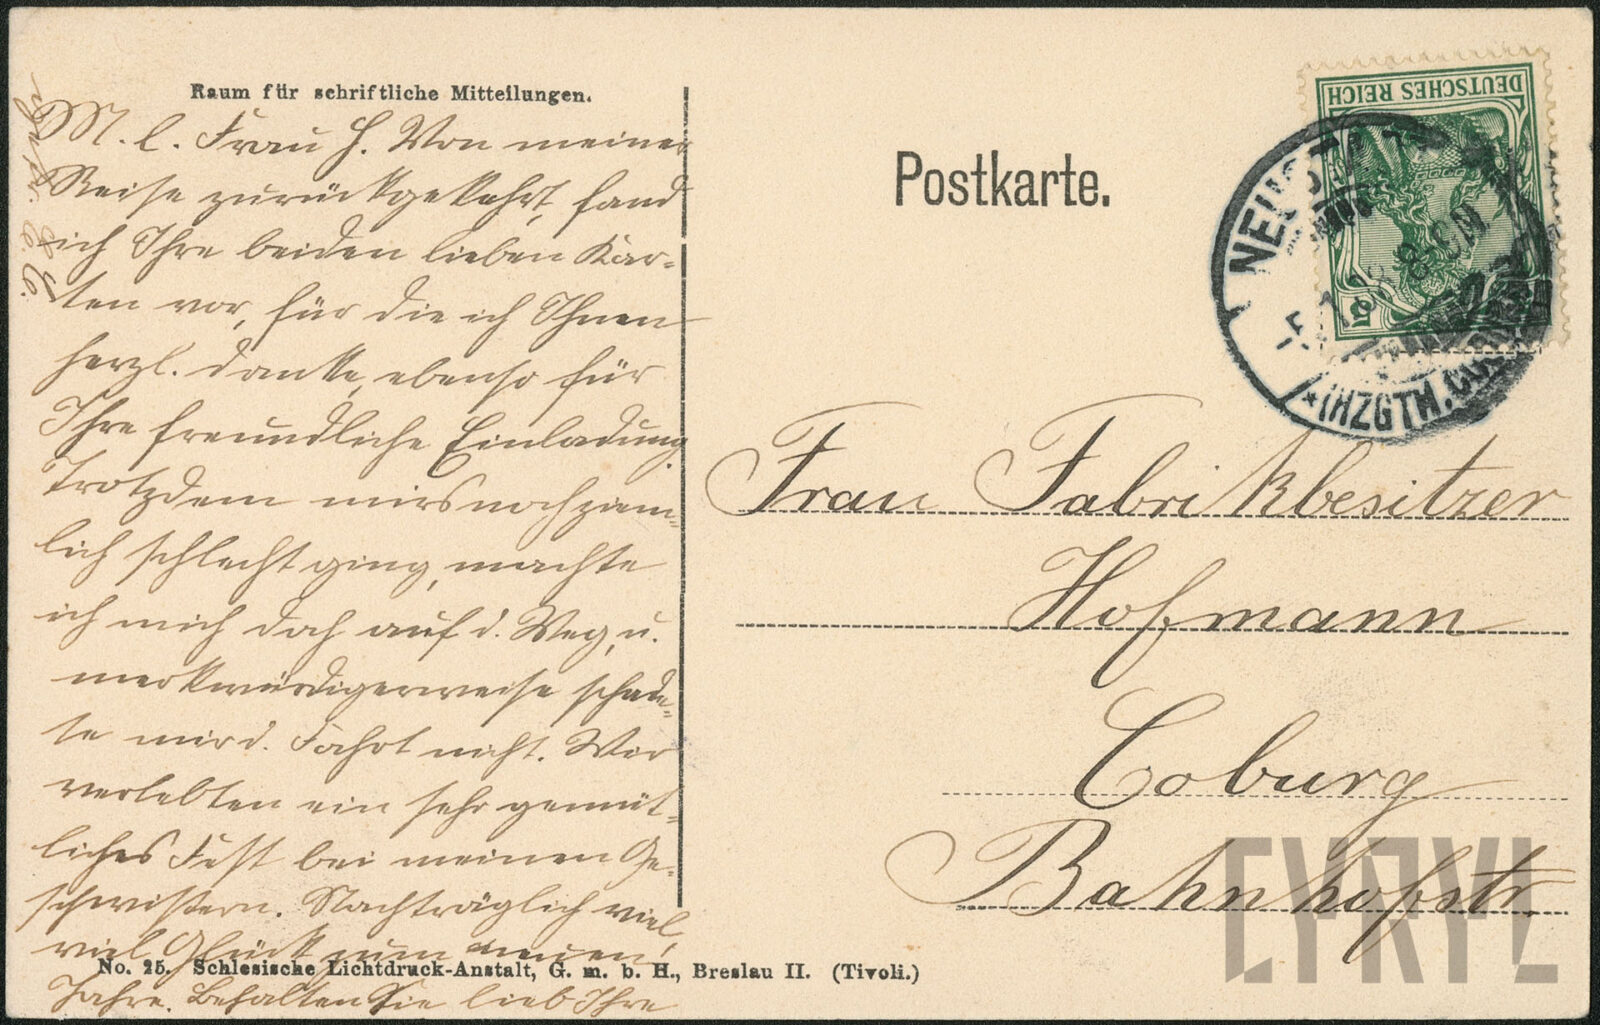 Raum für schriftliche Mitteilungen.
M. l. Frau H. Von meiner
Reise zurückgekehrt, fand
ich Ihre beiden lieben Kar-
ten vor, für die ich Ihnen
herzl. danke, ebenso für
Ihre freundliche Einladung.
Trotzdem mirs noch ziem-
lich schlecht ging, machte
ich mich doch auf d. Weg, u.
merkwürdigerweise schade-
te mir d. Fahrt nicht. Wir
verlebten ein sehr gemüt-
liches Fest bei meinen Ge-
schwistern. Nachträglich viel,
viel Glück zum neuen
Jahre. Behalten Sie lieb Ihre
Postkarte.
DEUTSCHES REICH
5
NEUS
*(HZGTM. CO
Frau Fabrikbesitzer
Hofmann
Coburg
Bahnhofstr.
No. 25. Schlesische Lichtdruck-Anstalt, G. m. b. H., Breslau II. (Tivoli.)
CYRYL